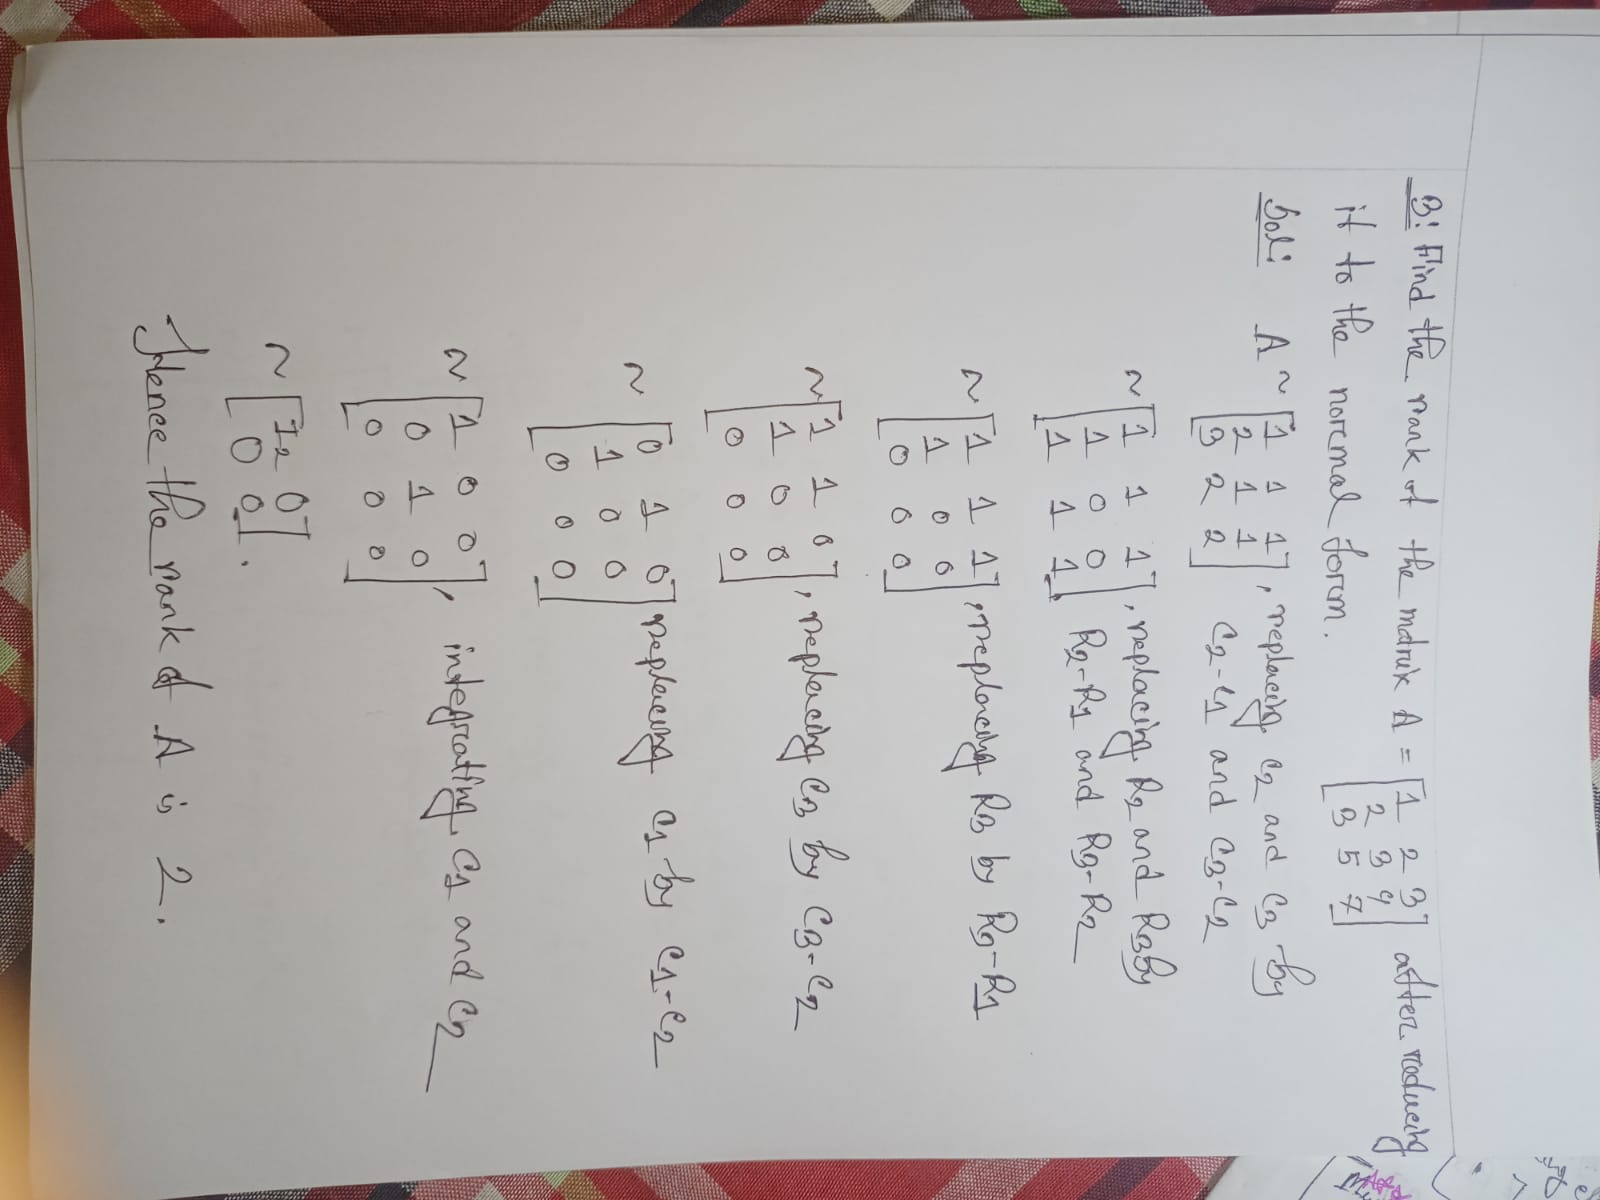 3: Find the rank of the matrix A = [1 2 3] after reducing
[2 3 4]
it to the normal form. [3 5 7]
Sol: A ~ [1 1 1], replacing C2 and C3 by
[2 1 1]
[3 2 2] C2-C1 and C3-C2
~ [1 1 1], replacing R2 and R3 by
[1 0 0] R2-R1 and R3-R2
[1 1 1]
~ [1 1 1], replacing R3 by R3-R1
[1 0 0]
[0 0 0]
~ [1 1 0], replacing C3 by C3-C2
[1 0 0]
[0 0 0]
~ [0 1 0] replacing C1 by C1-C2
[1 0 0]
[0 0 0]
~ [1 0 0], integrating C1 and C2
[0 1 0]
[0 0 0]
~ [I2 0]
[0 0].
Hence the rank of A is 2.